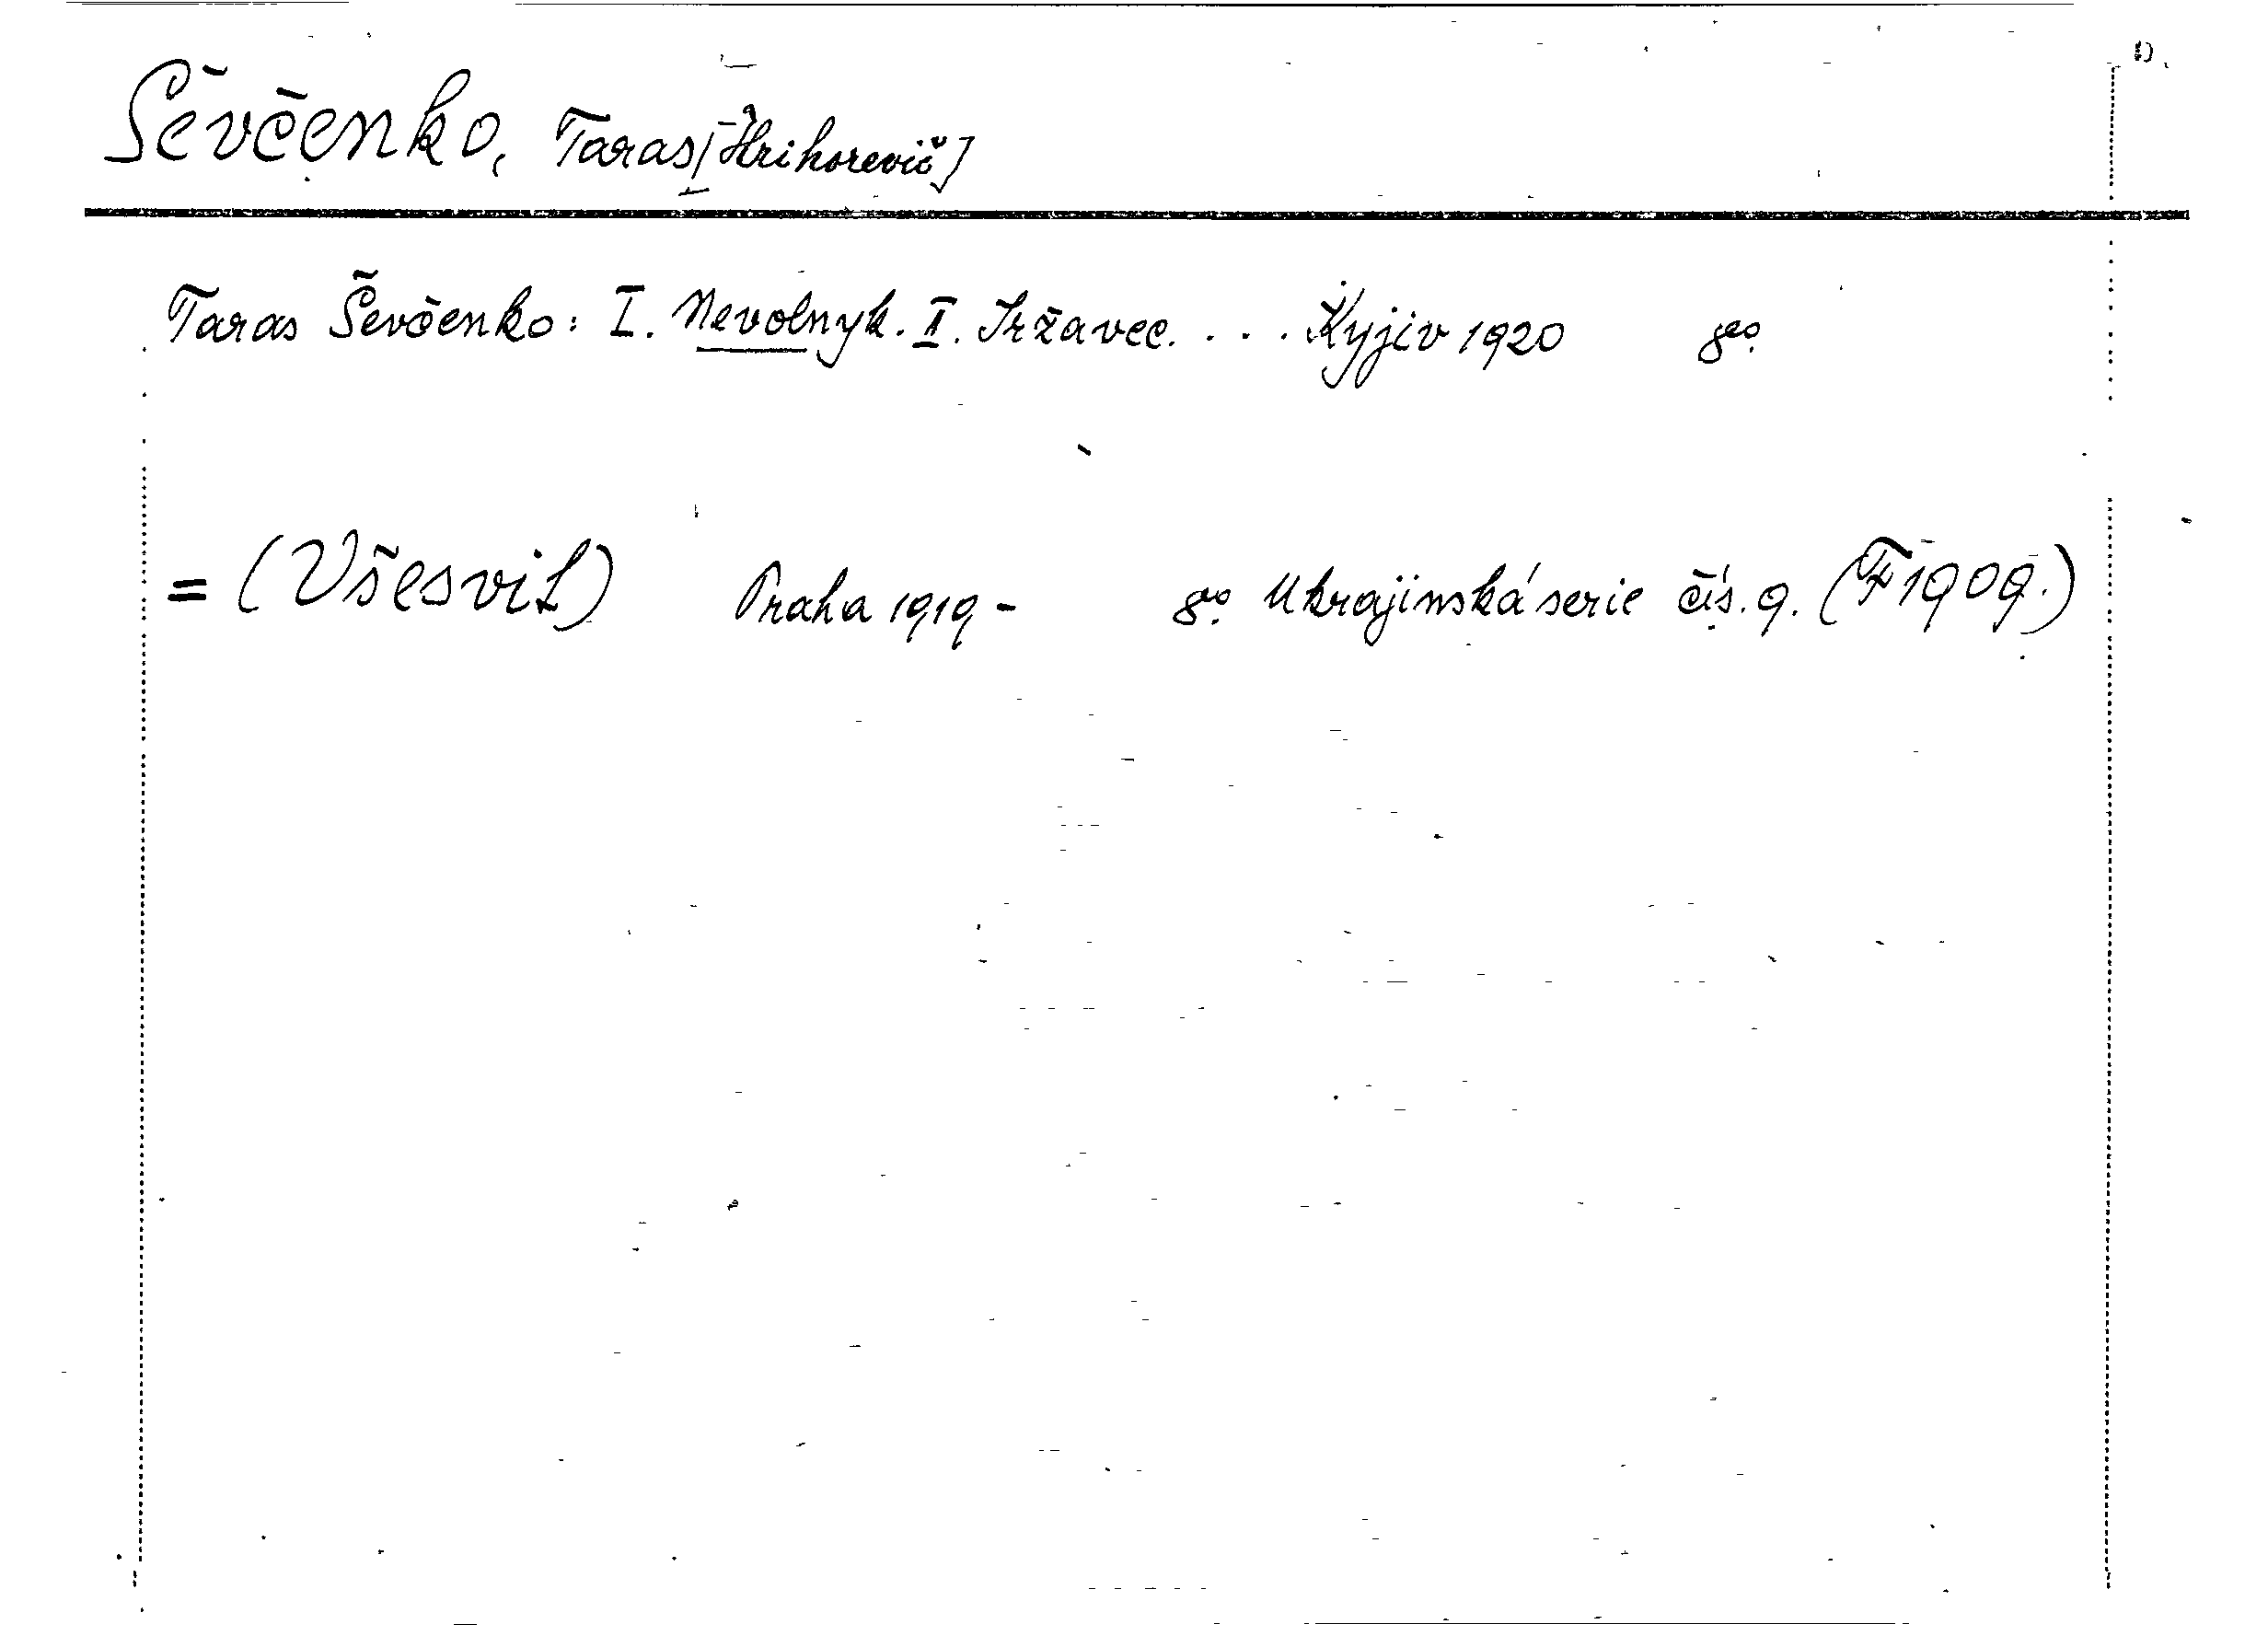 Ševčenko, Taras [Hrihorevič]
Taras Ševčenko: I. Nevolnyk. II. Iržavec. ... Kyjiv 1920 8°.
= (Všesvit) Praha 1919 - 8°. Ukrajinská serie čís. 9. (F 1909.)